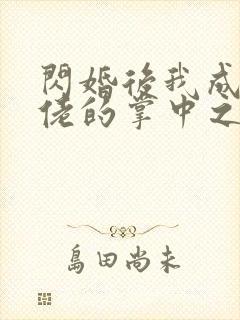 閃婚後我成
佬的掌中之
島田尚未